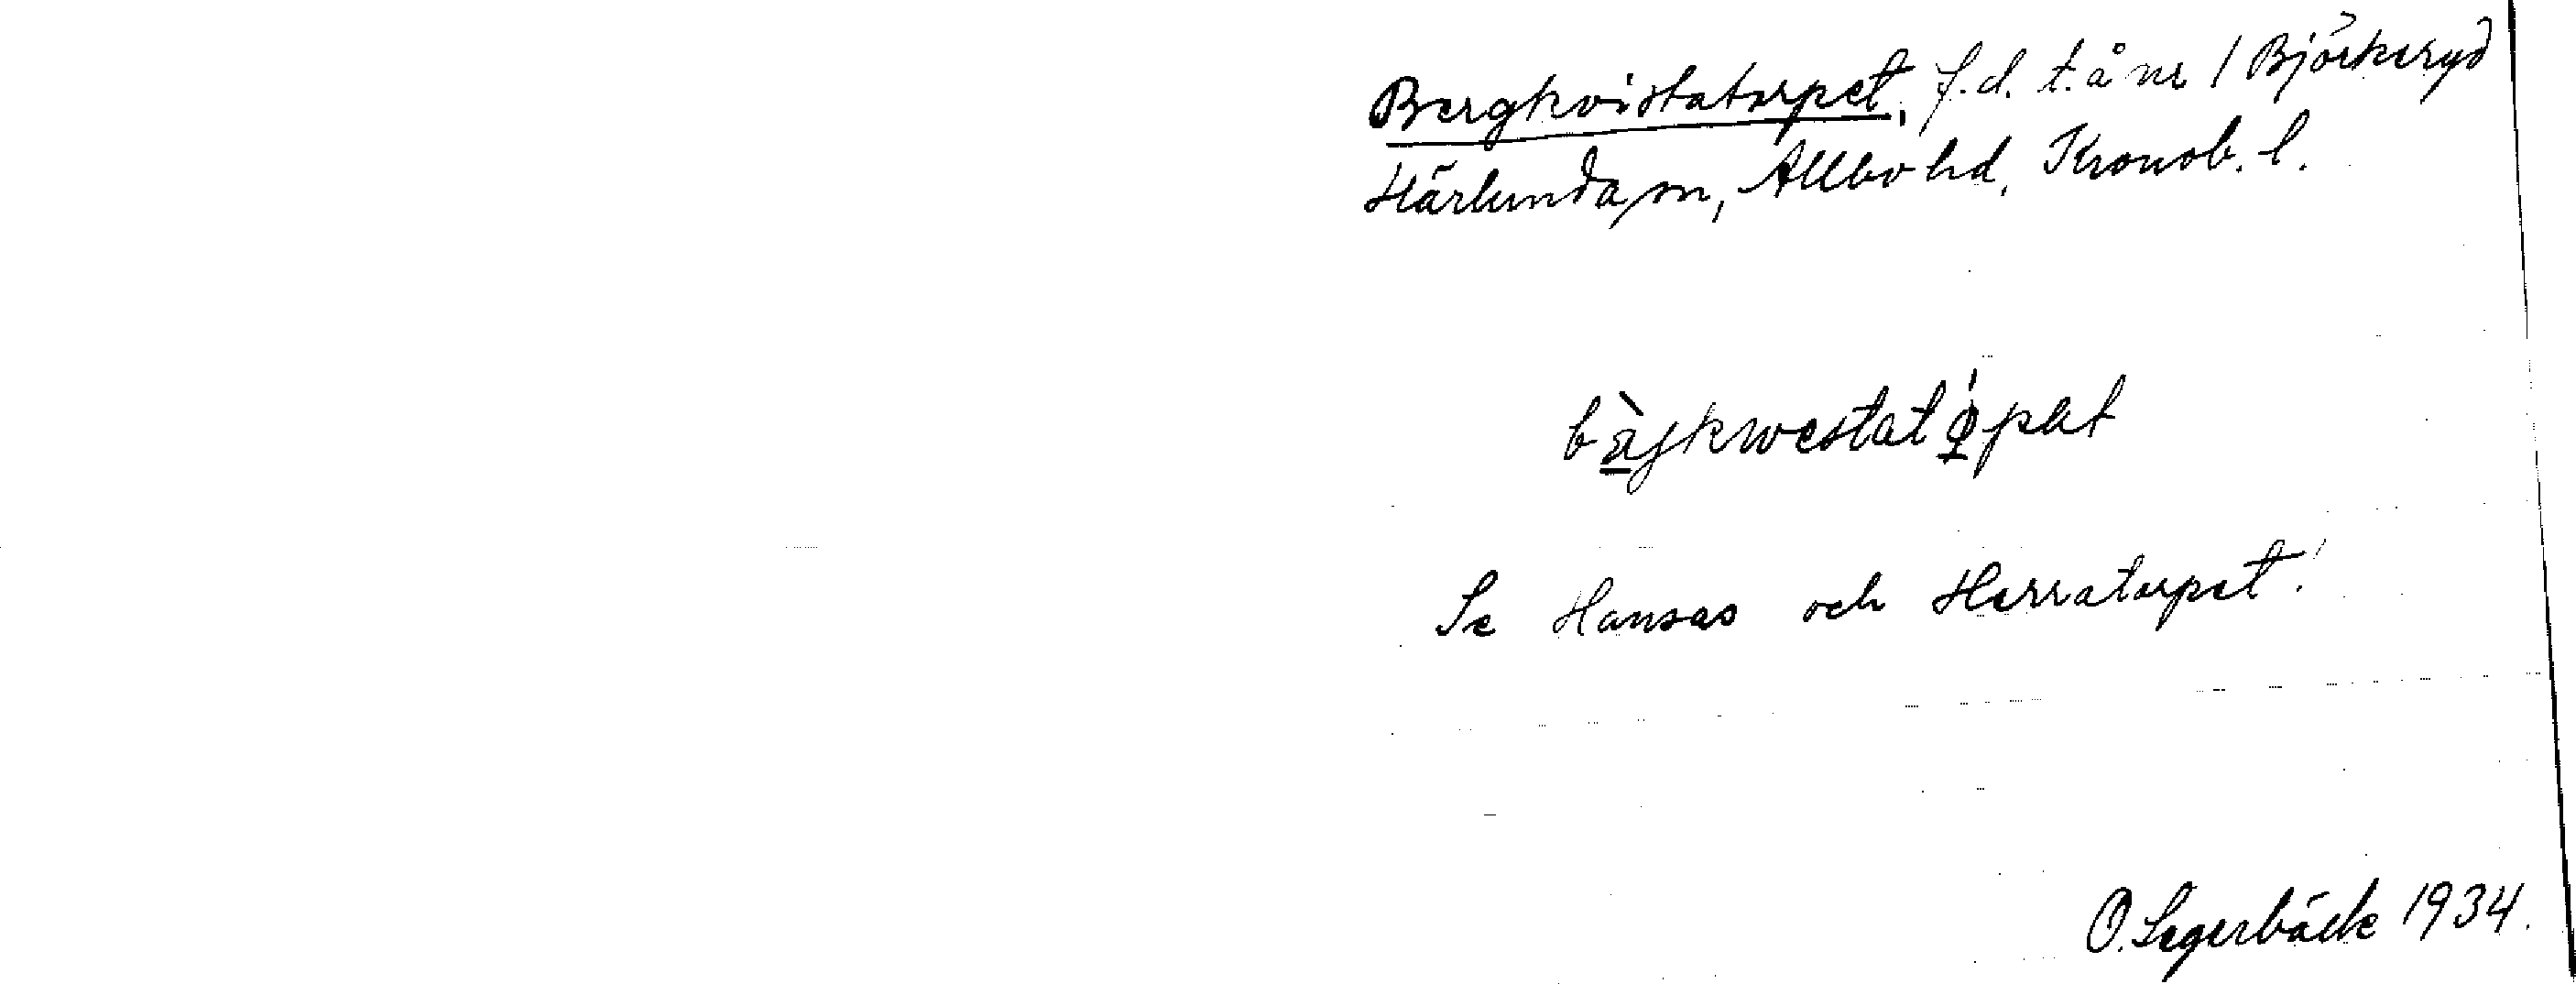 Bergkvistatorpet, f.d. t. å nr 1 Björkeryd
Härlunda sn, Allbo hd, Kronob. l.
bàjkwestatǫ́pet
Se Hansas och Herratorpet!
O. Segerbäck 1934.